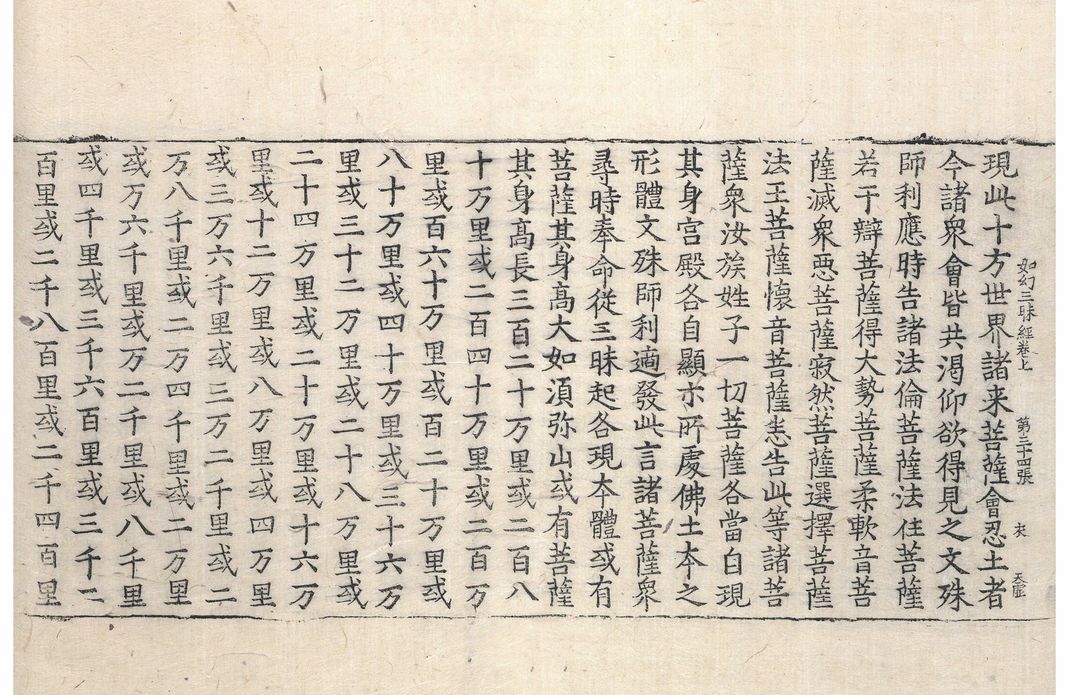 如幻三昧經卷上 第三十四張
現此十方世界諸来菩薩會忍土者
今諸衆會皆共渴仰欲得見之文殊
師利應時告諸法倫菩薩法住菩薩
若干辯菩薩得大勢菩薩柔軟音菩
薩滅衆惡菩薩寂然菩薩選擇菩薩
法王菩薩懷音菩薩悉告此等諸菩
薩衆汝族姓子一切菩薩各當自現
其身宮殿各自顯示所處佛土本之
形體文殊師利適發此言諸菩薩衆
尋時奉命從三昧起各現本體或有
菩薩其身髙大如湏弥山或有菩薩
其身髙長三百二十万里或二百八
十万里或二百四十万里或二百万
里或百六十万里或百二十万里或
八十万里或四十万里或三十六万
里或三十二万里或二十八万里或
二十四万里或二十万里或十六万
里或十二万里或八万里或四万里
或三万六千里或三万二千里或二
万八千里或二万四千里或二万里
或万六千里或万二千里或八千里
或四千里或三千六百里或三千二
百里或二千八百里或二千四百里